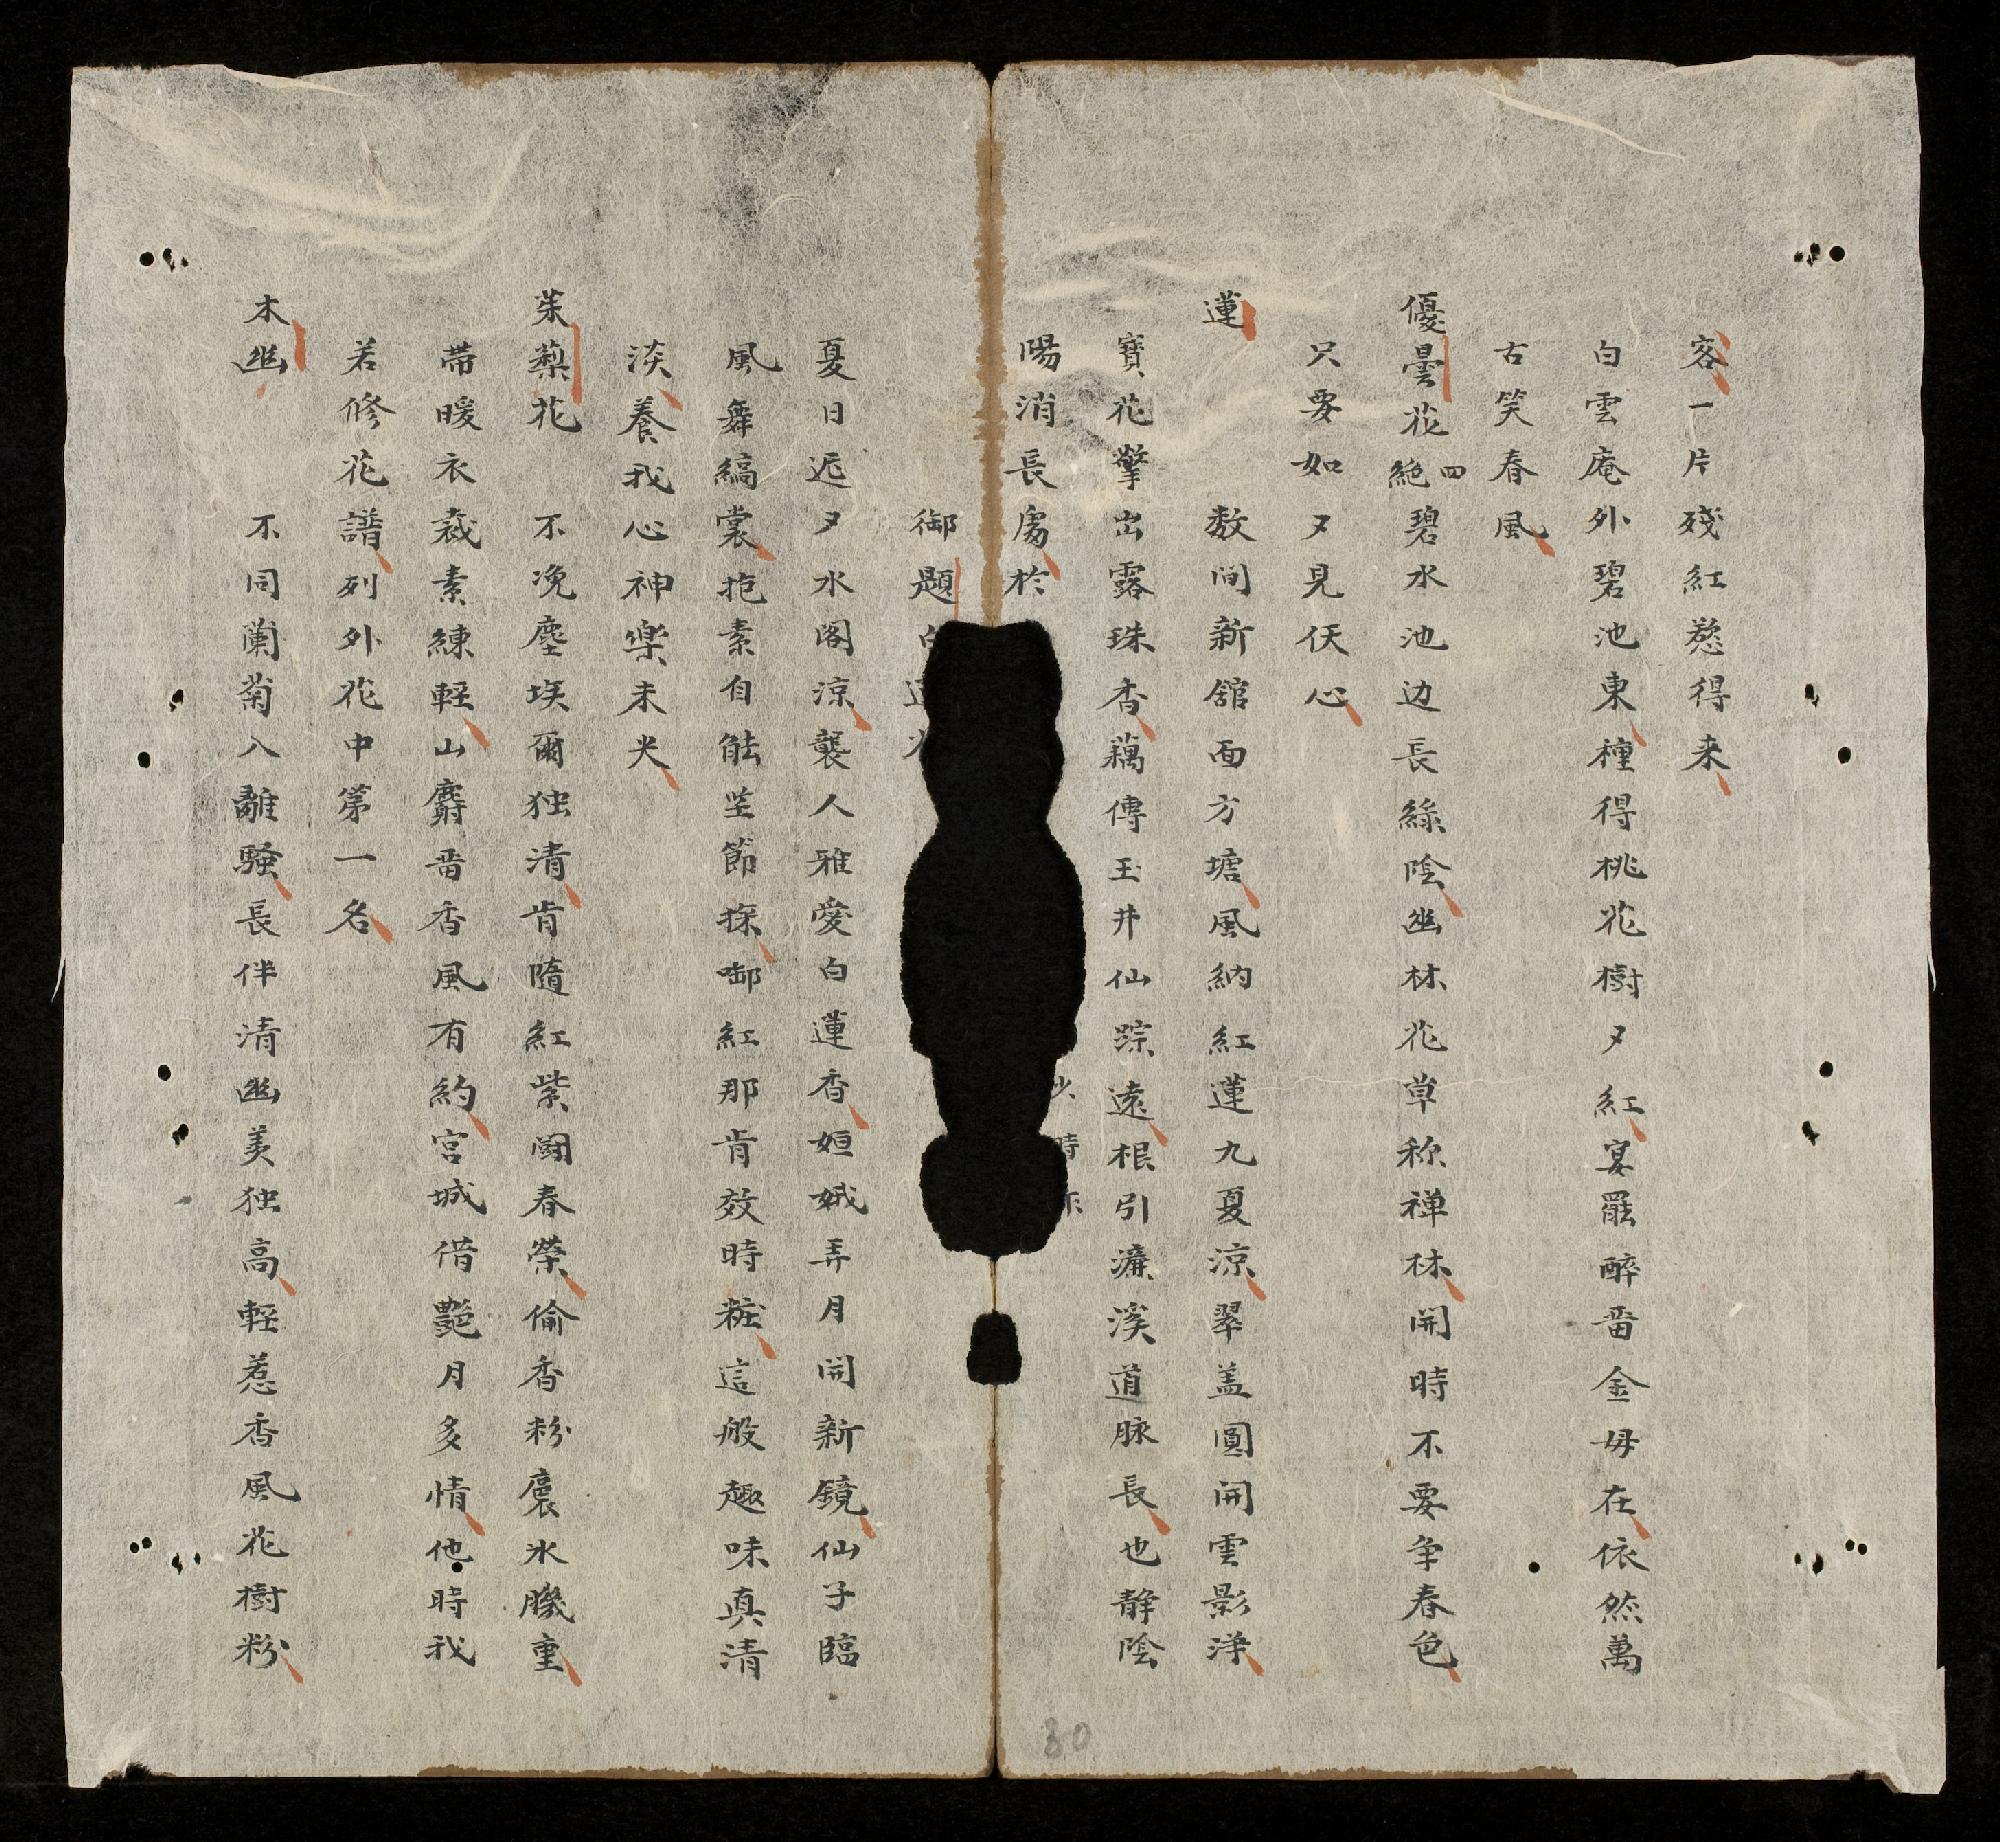 客一片殘紅惹得来
白雲庵外碧池東種得桃花樹〻紅宴罷醉畨金母在依然萬
古笑春風
優曇花四絶碧水池边長緑陰幽林花草称禅林開時不要争春色
只要如〻見仸心
蓮 数间新舘面方塘風納紅蓮九夏涼翠盖圓開雲影浄
寳花擎出露珠香藕傳玉井仙踪遠根引濂溪道脉長也静陰
陽消長處於 時
御題
夏日迟〻水閣涼襲人雅愛白蓮香姮娥弄月開新鏡仙子臨
風舞縞裳抱素自能坚節操啣紅那肯效時粧這般趣味真清
淡養我心神樂未央
茉藜花 不浼塵埃爾独清肯隨紅紫闘春榮偷香粉裛氷膓重
帯暖衣裁素練輕山麝畨香風有約宫城借艷月多情他時我
若修花譜列外花中第一名
木幽 不同蘭菊入離騷長伴清幽美独高輕惹香風花樹粉
30